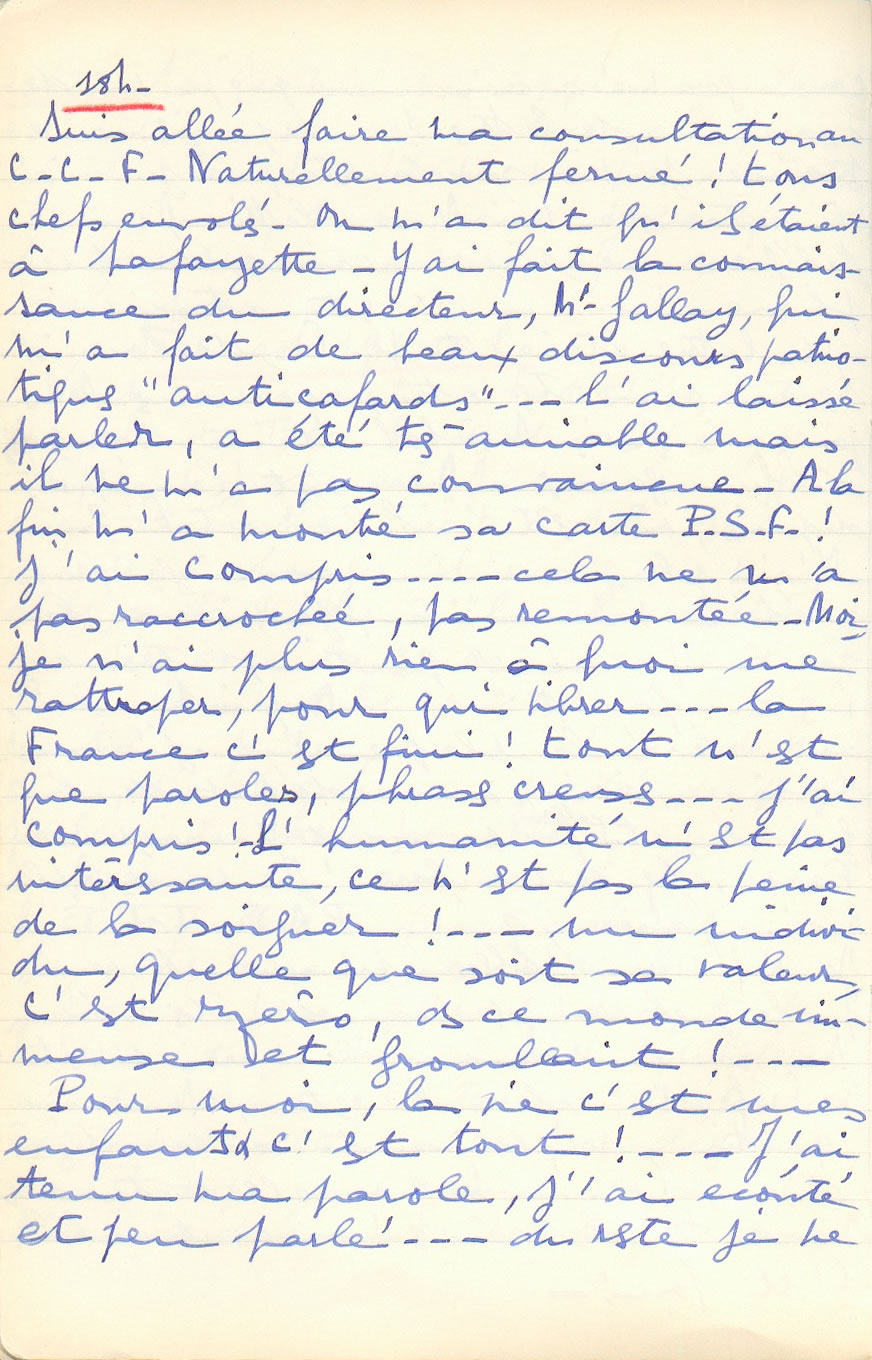 18h-
Suis allée faire ma consultation au
C-C-F- Naturellement fermé! tous
chefs envolés- On m'a dit qu'ils étaient
à Lafayette - J'ai fait la connais-
sance du directeur, Mr Gallay, qui
m'a fait de beaux discours patrio-
tiques "anticafards"--- L'ai laissé
parler, a été ts aimable mais
il ne m'a pas convaincue - A la
fin m'a montré sa carte P.S.F.!
J'ai compris---- cela ne m'a
pas raccrochée, pas remontée - Moi,
je n'ai plus rien à quoi me
rattraper, pour qui vibrer --- la
France c'est fini! tout n'est
que paroles, phrases creuses --- j'ai
compris! L'humanité n'est pas
intéressante, ce n'est pas la peine
de la soigner! --- un indivi-
du, quelle que soit sa valeur,
c'est zéro, ds ce monde im-
mense et grouillant! ---
Pour moi, la vie c'est mes
enfants & c'est tout! ---- J'ai
tenu ma parole, j'ai écouté
et peu parlé --- du reste je ne